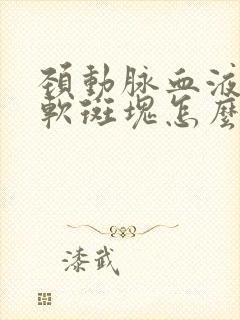 頚動脉血液
軟斑塊怎麼
漆武